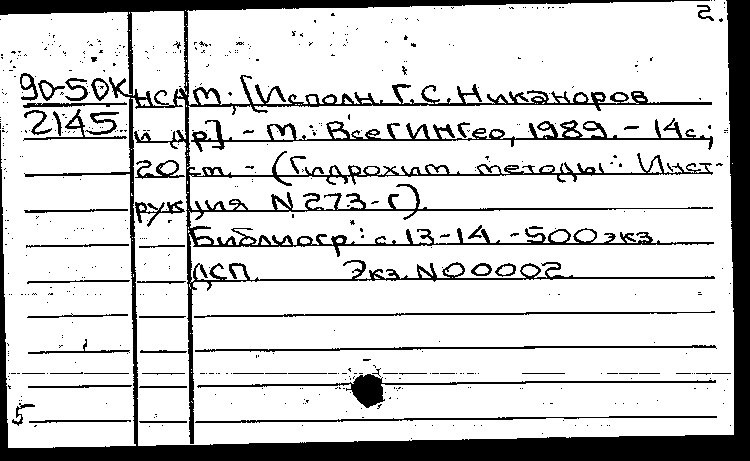 2.
90-50К НСАМ; [Исполн. Г.С. Никаноров
2145 и др]. - М.: ВсеГИНГео, 1989. - 14с.;
20 cm. - (Гидрохим. методы: Инст-
рукция N 273-Г).
Библиогр.: с. 13-14. - 500 экз.
ДСП. Экз. N00002.
5